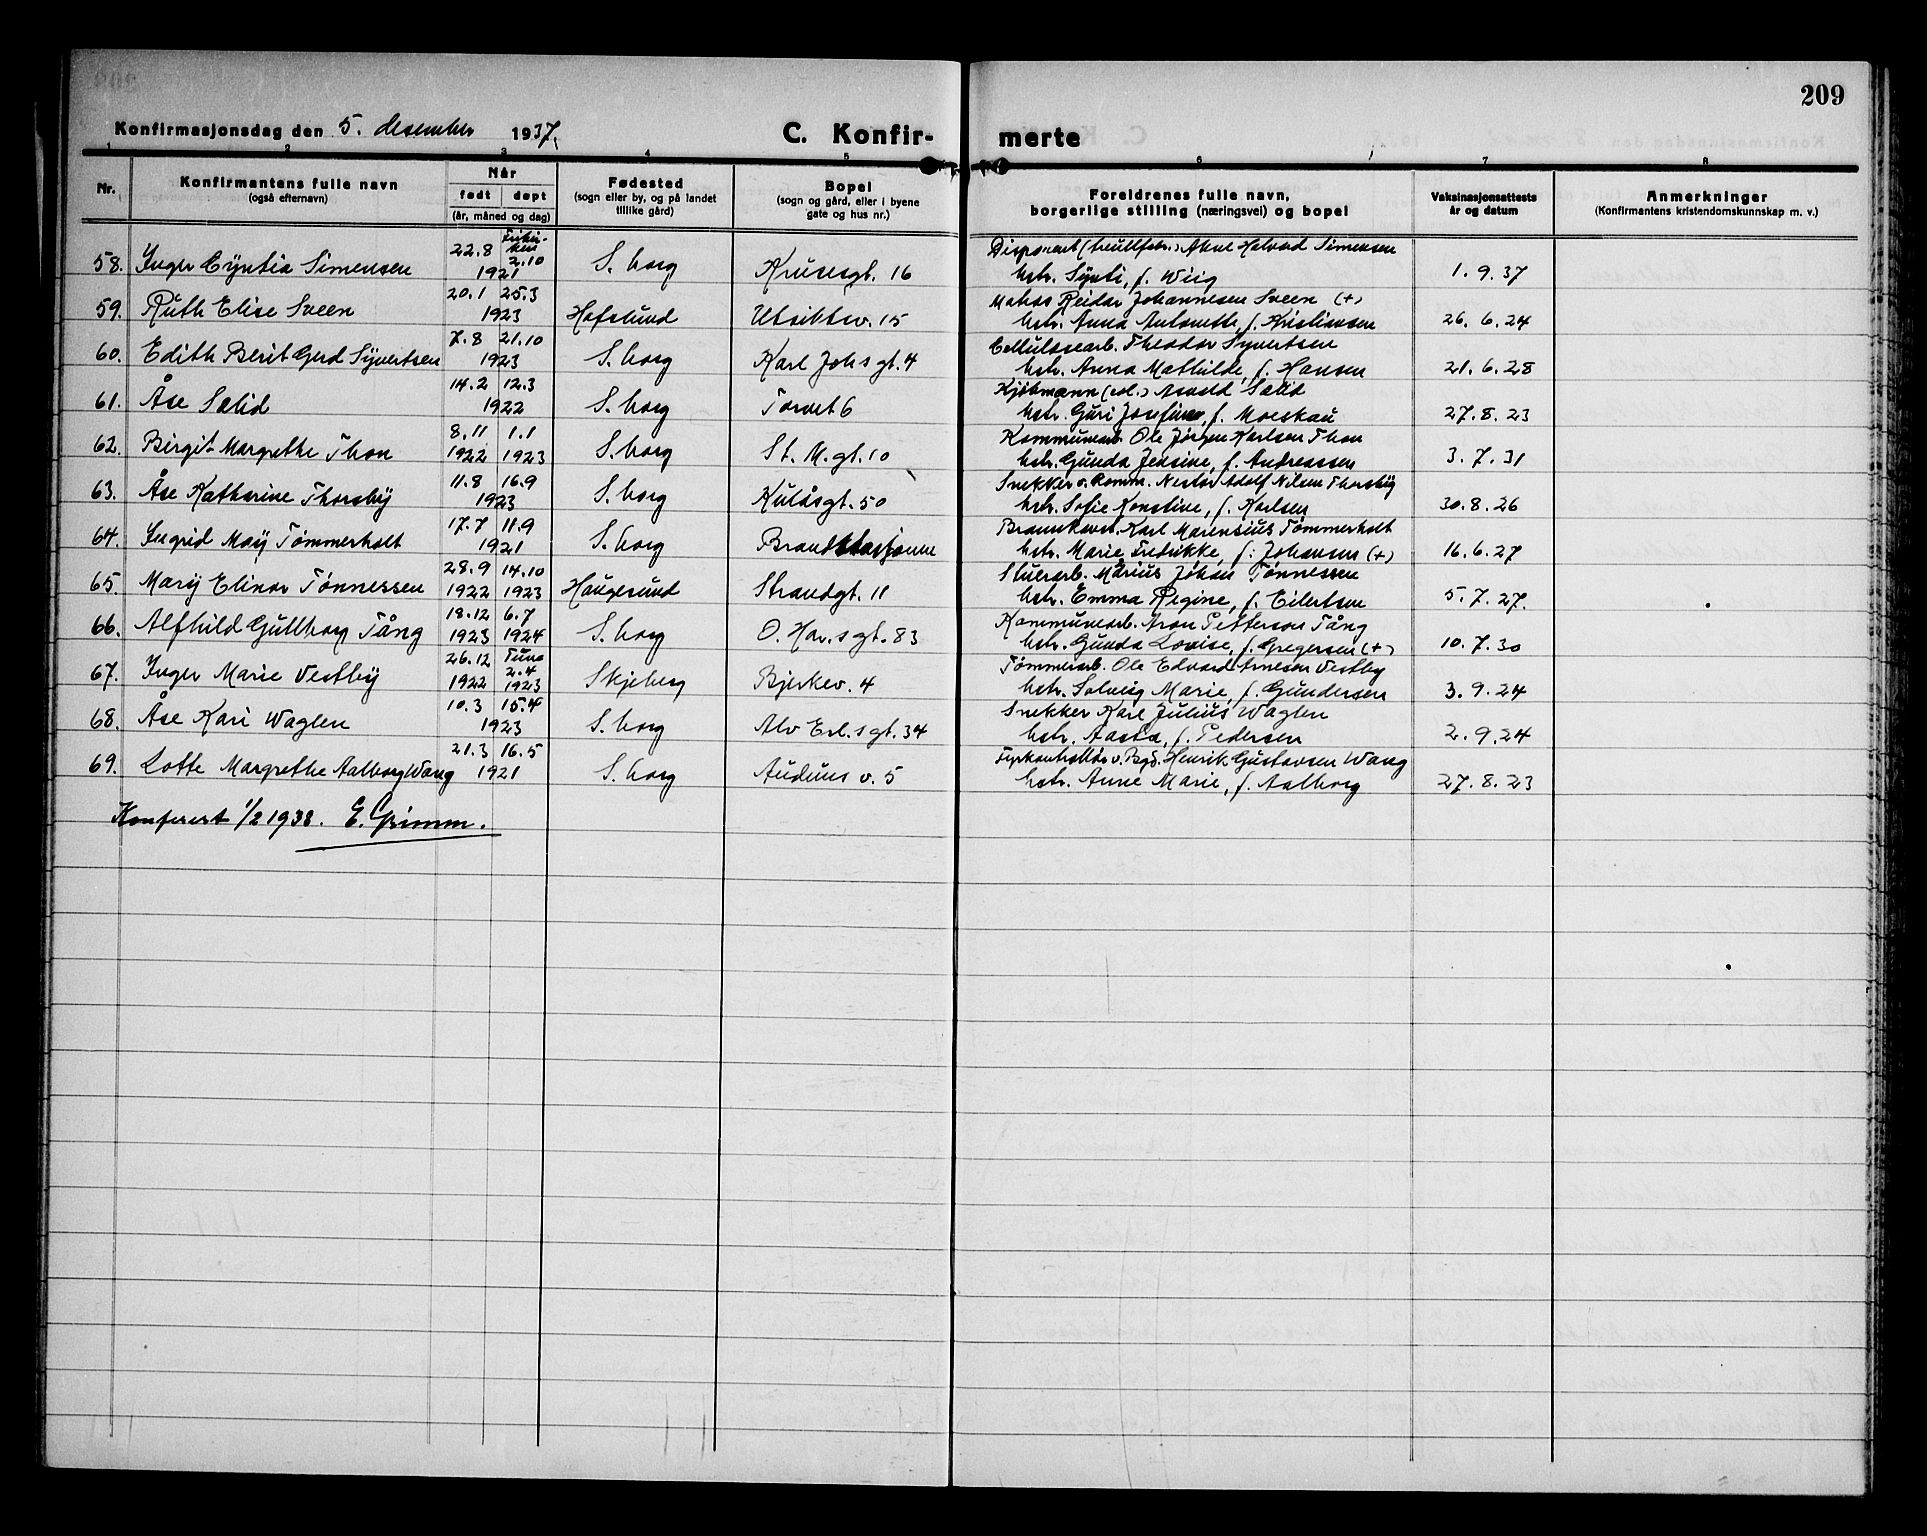 209
Konfirmasjonsdag den 5. desember 1937.
C. Konfir- merte
1 2 3 4 5 6 7 8
Nr.
Konfirmantens fulle navn
(også efternavn)
Når
født døpt
(år, måned og dag)
Fødested
(sogn eller by, og på landet
tillike gård)
Bopel
(sogn og gård, eller i byene
gate og hus nr.)
Foreldrenes fulle navn,
borgerlige stilling (næringsvei) og bopel
Vaksinasjonsattests
år og datum
Anmerkninger
(Konfirmantens kristendomskunnskap m. v.)
58. Inger Cyntia Simensen 22.8 2.10 1921 S. borg Krusesgt. 16 Disponent Halvard Simensen
hstr. Synti, f. Wiig 1.9.37
59. Ruth Elise Sveen 20.1 25.3 1923 Hafslund Utsiktsv. 15 Matros Reidar Johannesen Sveen (+)
hstr. Anna Antonette, f. Kristiansen 26.6.24
60. Edith Berit Gerd Syvertsen 7.8 21.10 1923 S. borg Karl Johs gt. 4 Cellulosearb. Theodor Syvertsen
hstr. Anna Mathilde, f. Hansen 21.6.28
61. Åse Solid 14.2 12.3 1922 S. borg Torvet 6 Kjøbmann Solid
hstr. Guri Josefine, f. Moeskau 27.8.23
62. Birgit Margrethe Thon 8.11 1922 1.1 1923 S. borg St. M. gt. 10 Kommunearb. Ole Jørgen Karlsen Thon
hstr. Gunda Jensine, f. Andreassen 3.7.31
63. Åse Katharine Thorsby 11.8 16.9 1923 S. borg Kulåsgt. 50 Snekker v. komm. Nestor Adolf Nilsen Thorsby
hstr. Sofie Konstine, f. Karlsen 30.8.26
64. Ingrid May Tømmerholt 17.7 11.9 1921 S. borg Brandstasjonen Karl Marensius Tømmerholt
hstr. Marie Fredrikke, f. Johansen (+) 16.6.27
65. Mary Elinor Tønnessen 28.9 1922 14.10 1923 Haugesund Strandgt. 11 Stuerarb. Marius Johan Tønnessen
hstr. Emma Regine, f. Eilertsen 5.7.27.
66. Alfhild Gullborg Tång 18.12 1923 6.7 1924 S. borg O. Har.s gt. 83 Kommunearb. Aron Petterson Tång
hstr. Gunda Lovise, f. Gregersen (+) 10.7.30
67. Inger Marie Vestby 26.12 1922 Tune 2.4 1923 Skjeberg Bjerkev. 4 Tømmerarb. Ole Edvard Arnesen Vestby
hstr. Solveig Marie, f. Gundersen 3.9.24
68. Åse Kari Waglen 10.3 15.4 1923 S. borg Alv Erl.s gt. 34 Snekker Karl Julius Waglen
hstr. Aasta, f. Pedersen 2.9.24
69. Lotte Margrethe Aalborg Wang 21.3 16.5 1921 S. borg Auduns v. 5 Fyrkontrollør v. Bgd. Henrik Gustavsen Wang
hstr. Anne Marie, f. Aalborg 27.8.23
Konferert 1/2 1938. E. Grimm.